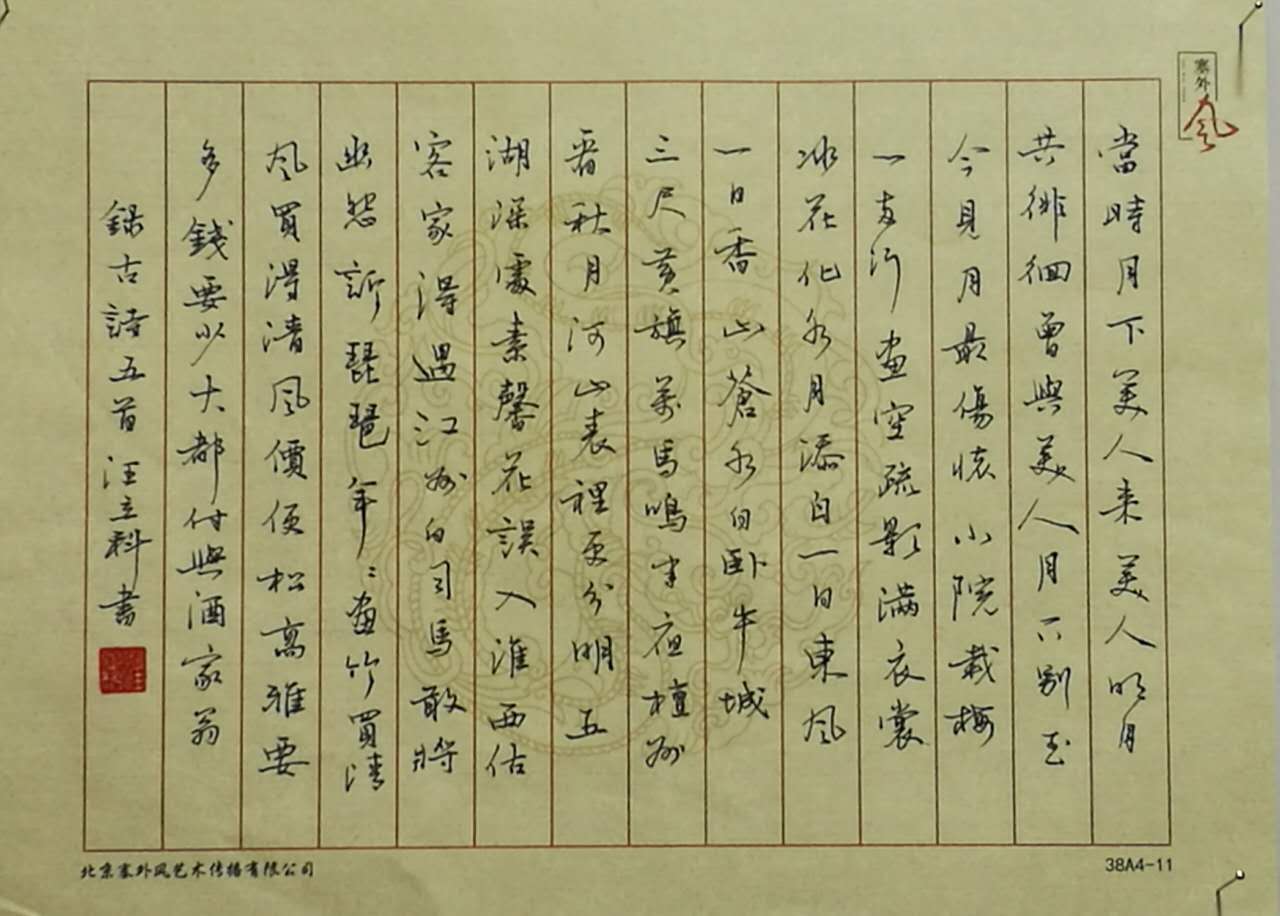 塞外
風
當時月下美人来美人明月
共徘徊曾與美人月下别至
今見月最傷懷小院栽梅
一两行畫空疏影滿衣裳
冰花化水月添白一日東風
一日香山蒼水白卧牛城
三尺黄旗萬馬鳴半夜檀州
看秋月河山表裡更分明五
湖深處素馨花誤入淮西估
客家得遇江州白司馬敢將
幽怨訴琵琶年〻畫竹買清
風買得清風價便松高雅要
多錢要少大都付與酒家翁
錄古詩五首汪立科書
北京塞外风艺术传播有限公司
38A4-11